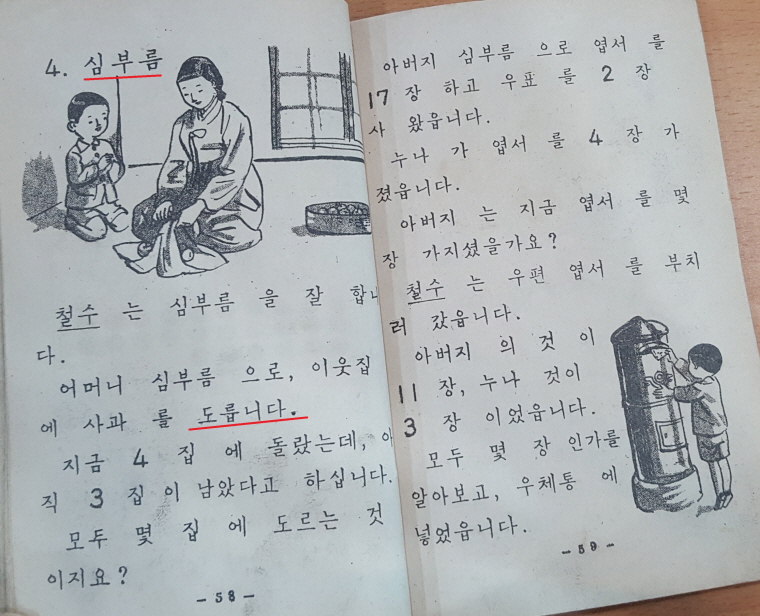 4. 심부름
철수 는 심부름 을 잘 합니
다.
어머니 심부름 으로, 이웃집
에 사과 를 도릅니다.
지금 4 집 에 돌랐는데, 아
직 3 집이 남았다고 하십니다.
모두 몇 집 에 도르는 것
이지요?
- 58 -
아버지 심부름 으로 엽서 를
17 장 하고 우표 를 2 장
사 왔읍니다.
누나 가 엽서 를 4 장 가
졌읍니다.
아버지 는 지금 엽서 를 몇
장 가지셨을가요?
철수 는 우편 엽서 를 부치
러 갔읍니다.
아버지 의 것 이
11 장, 누나 것이
3 장 이었읍니다.
모두 몇 장 인가를
알아보고, 우체통 에
넣었읍니다.
- 59 -